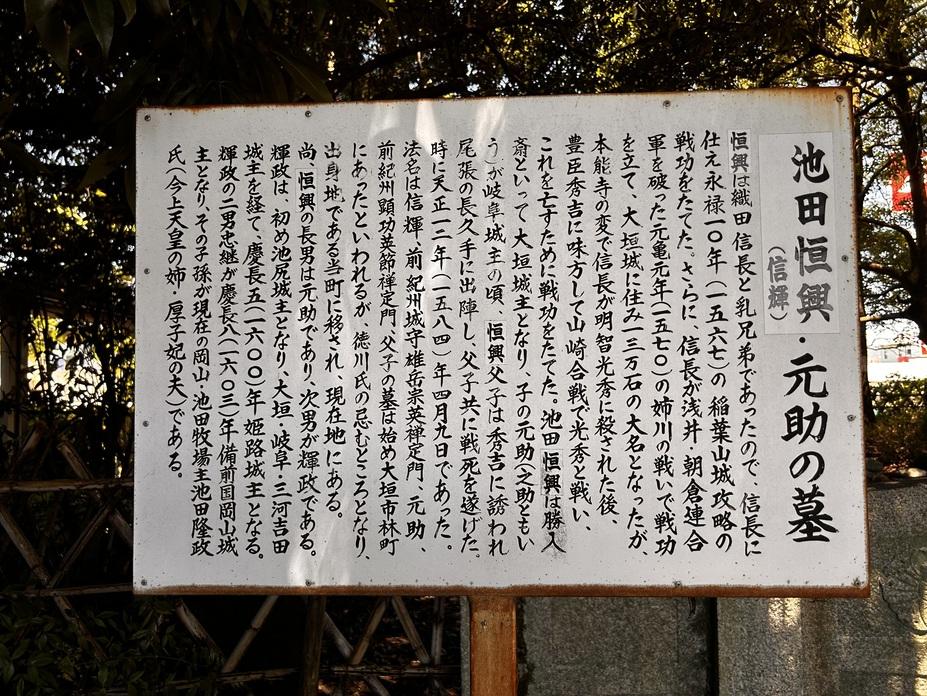 池田恒興・元助の墓
(信輝)
恒興は織田信長と乳兄弟であったので、信長に
仕え永禄一〇年(一五六七)の稲葉山城攻略の
戦功をたてた。さらに、信長が浅井 朝倉連合
軍を破った元亀元年(一五七〇)の姉川の戦いで戦功
を立て、大垣城に住み一三万石の大名となったが、
本能寺の変で信長が明智光秀に殺された後、
豊臣秀吉に味方して山崎合戦で光秀と戦い、
これを亡すために戦功をたてた。池田恒興は勝入
斎といって大垣城主となり、子の元助(之助ともい
う)が岐阜城主の頃、恒興父子は秀吉に誘われ
尾張の長久手に出陣し、父子共に戦死を遂げた。
時に天正一二年(一五八四)年四月九日であった。
法名は信輝 前紀州城守雄岳宗英禅定門、元助、
前紀州顕功英節禅定門、父子の墓は始め大垣市林町
にあったといわれるが 徳川氏の忌むところとなり、
出身地である当町に移され、現在地にある。
尚、恒興の長男は元助であり、次男が輝政である。
輝政は、初め池尻城主となり、大垣・岐阜・三河吉田
城主を経て、慶長五(一六〇〇)年姫路城主となる。
輝政の二男忠継が慶長八(一六〇三)年備前国岡山城
主となり、その子孫が現在の岡山・池田牧場主池田隆政
氏(今上天皇の姉・厚子妃の夫)である。